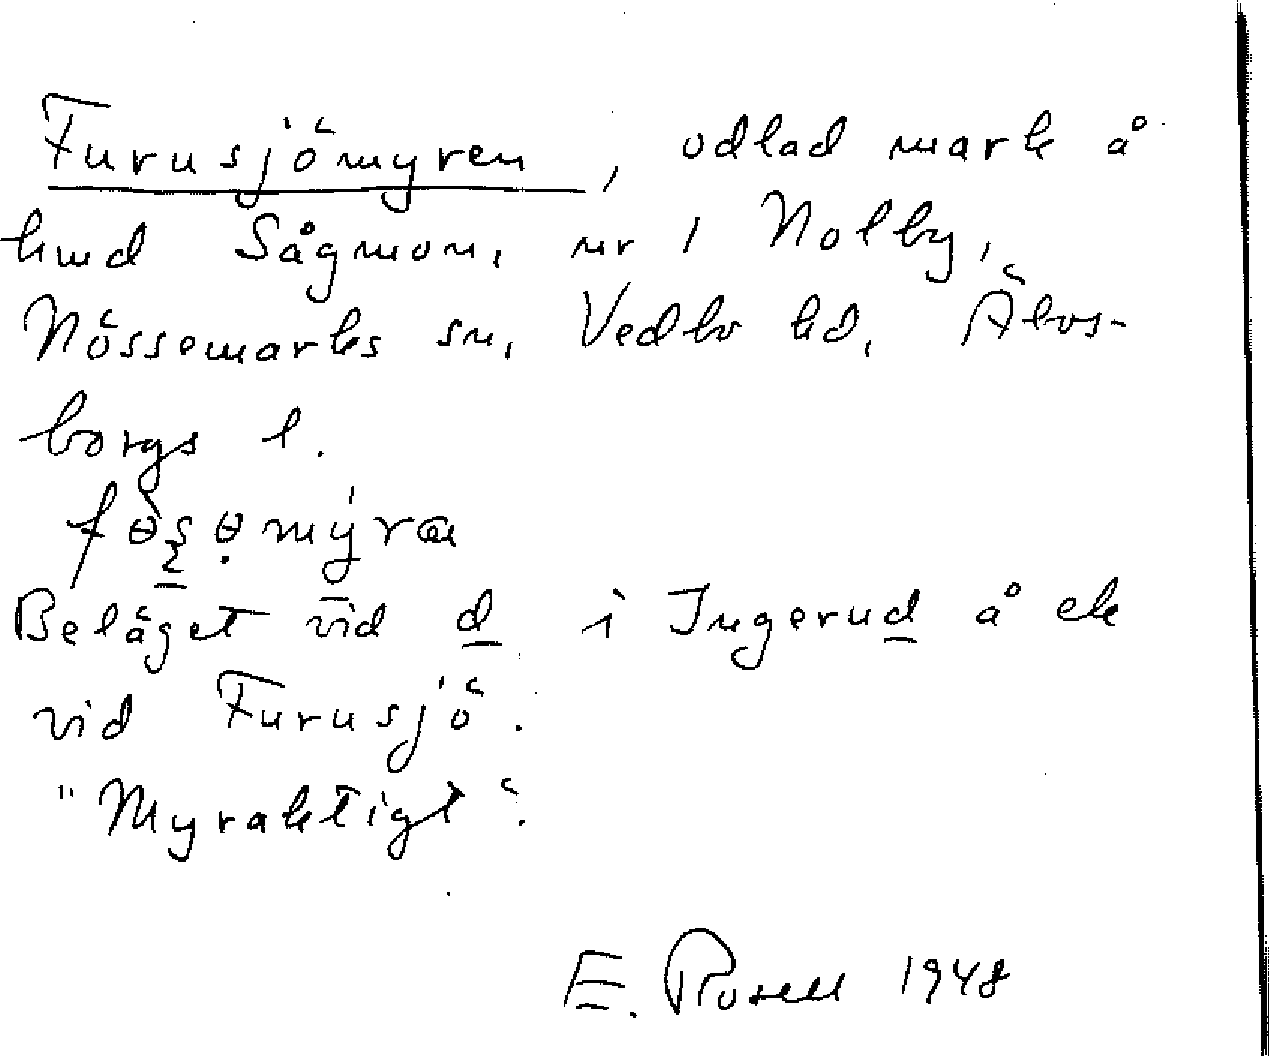 Furusjömyren, odlad mark å
hmd Sågmon, nr 1 Nolby,
Nössemarks sn, Vedbo hd, Älvs-
borgs l.
Beläget vid d i Ingerud å ek
vid Furusjö.
"Myraktigt".
E. Rosell 1948